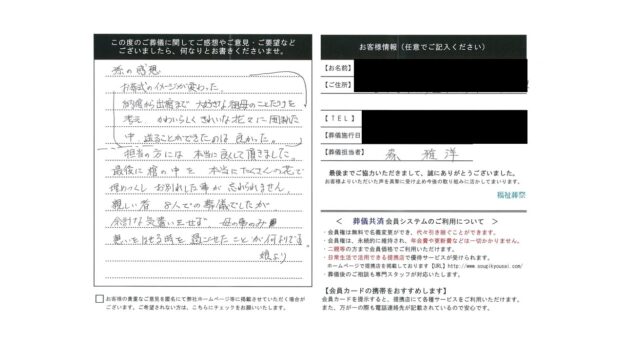 この度のご葬儀に関してご感想やご意見・ご要望など
ございましたら、何なりとお書きくださいませ。
孫の感想
お葬式のイメージが変わった。
納棺から出棺まで 大好きな祖母のことだけを
考え かわいらしく きれいな花々に 囲まれた
中 送ることができたのは 良かった。
担当の方には 本当に良くして頂きました。
最後に 棺の中を 本当にたくさんの花で
埋めつくし お別れした事が 忘れられません
親しい者 8人での葬儀でしたが
余計な気遣いさせず 母の事のみ
思いをはせる時を 過ごせたことが何よりです。
娘より
お客様の貴重なご意見を匿名にて弊社ホームページ等に掲載させていただく場合が
ございます。ご希望されない方は、こちらにチェックをお願いいたします。
お客様情報（任意でご記入ください）
【お名前】
【ご住所】
【ＴＥＬ】
【葬儀施行日】
【葬儀担当者】 森 雅洋
最後までご協力いただきまして、誠にありがとうございました。
お客様よりいただいた声を真摯に受け止め今後の取り組みに活かしてまいります。
福祉葬祭
＜ 葬儀共済 会員システムのご利用について ＞
・会員様は無料で名義変更ができ、代々引き継ぐことができます。
・会員権は、永続的に維持され、年会費や更新費などは一切かかりません。
・二親等の方まで会員価格でご利用いただけます。
・日常生活で活用できる提携店で優待サービスが受けられます。
ホームページで提携店を掲載しております【URL】http://www.sougikyousai.com/
・葬儀後のご相談も専門スタッフが対応いたします。
【会員カードの携帯をおすすめします】
会員カードを提示すると、提携店にて各種サービスをご利用いただけます。
また、万が一の際も電話連絡先が記載されているので安心です。